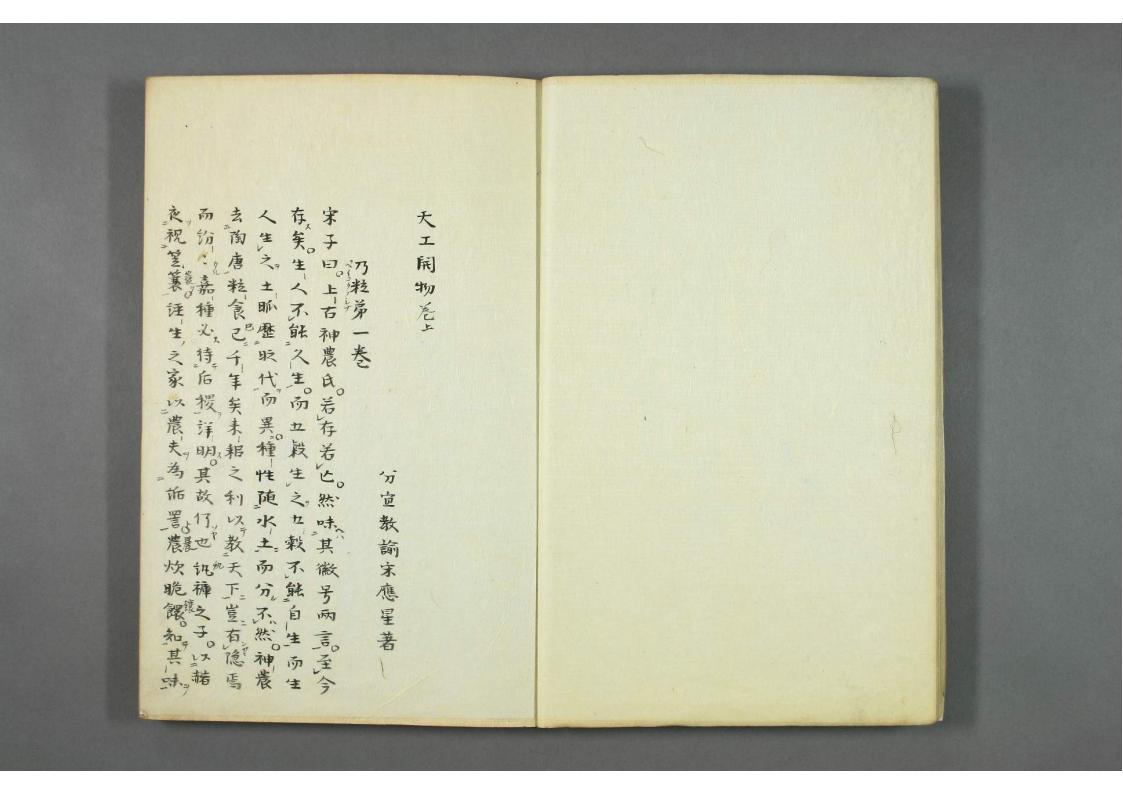 天工開物巻上
分宜教諭宋應星著
乃粒第一巻
宋子曰上古神農氏若存若亡然味其徽号兩言至今
存矣生人不能久生而五穀生之五穀不能自生而生
人生之土脉歷时代而異種性随水土而分不然神農
去陶唐粒食已千年矣耒耜之利以教天下豈有隐焉
而纷々嘉種必待后稷洋明其故何也纨褲之子以赭
衣视笠蓑经生之家以農夫為詬詈農炊晚饟知其味